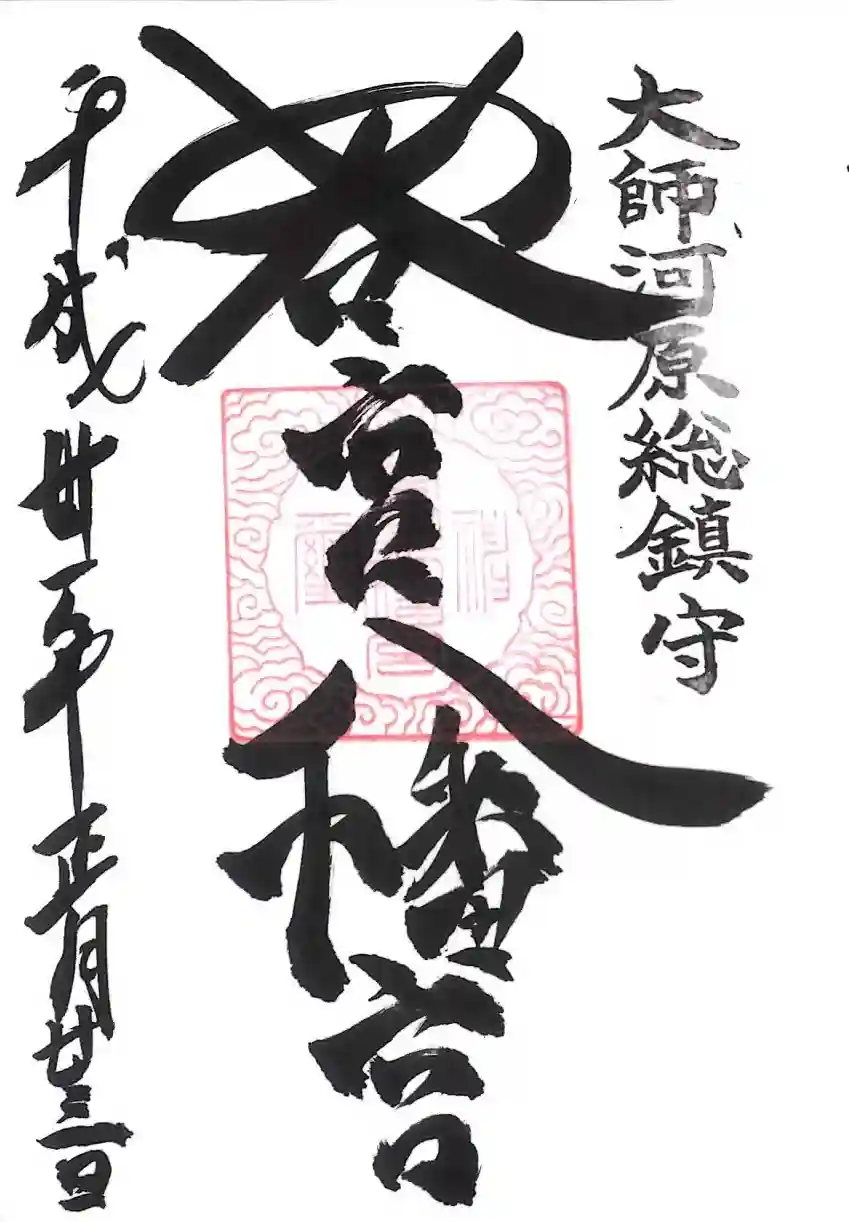 大師河原総鎮守
若宮八幡宮
平成卅一年正月廿三日